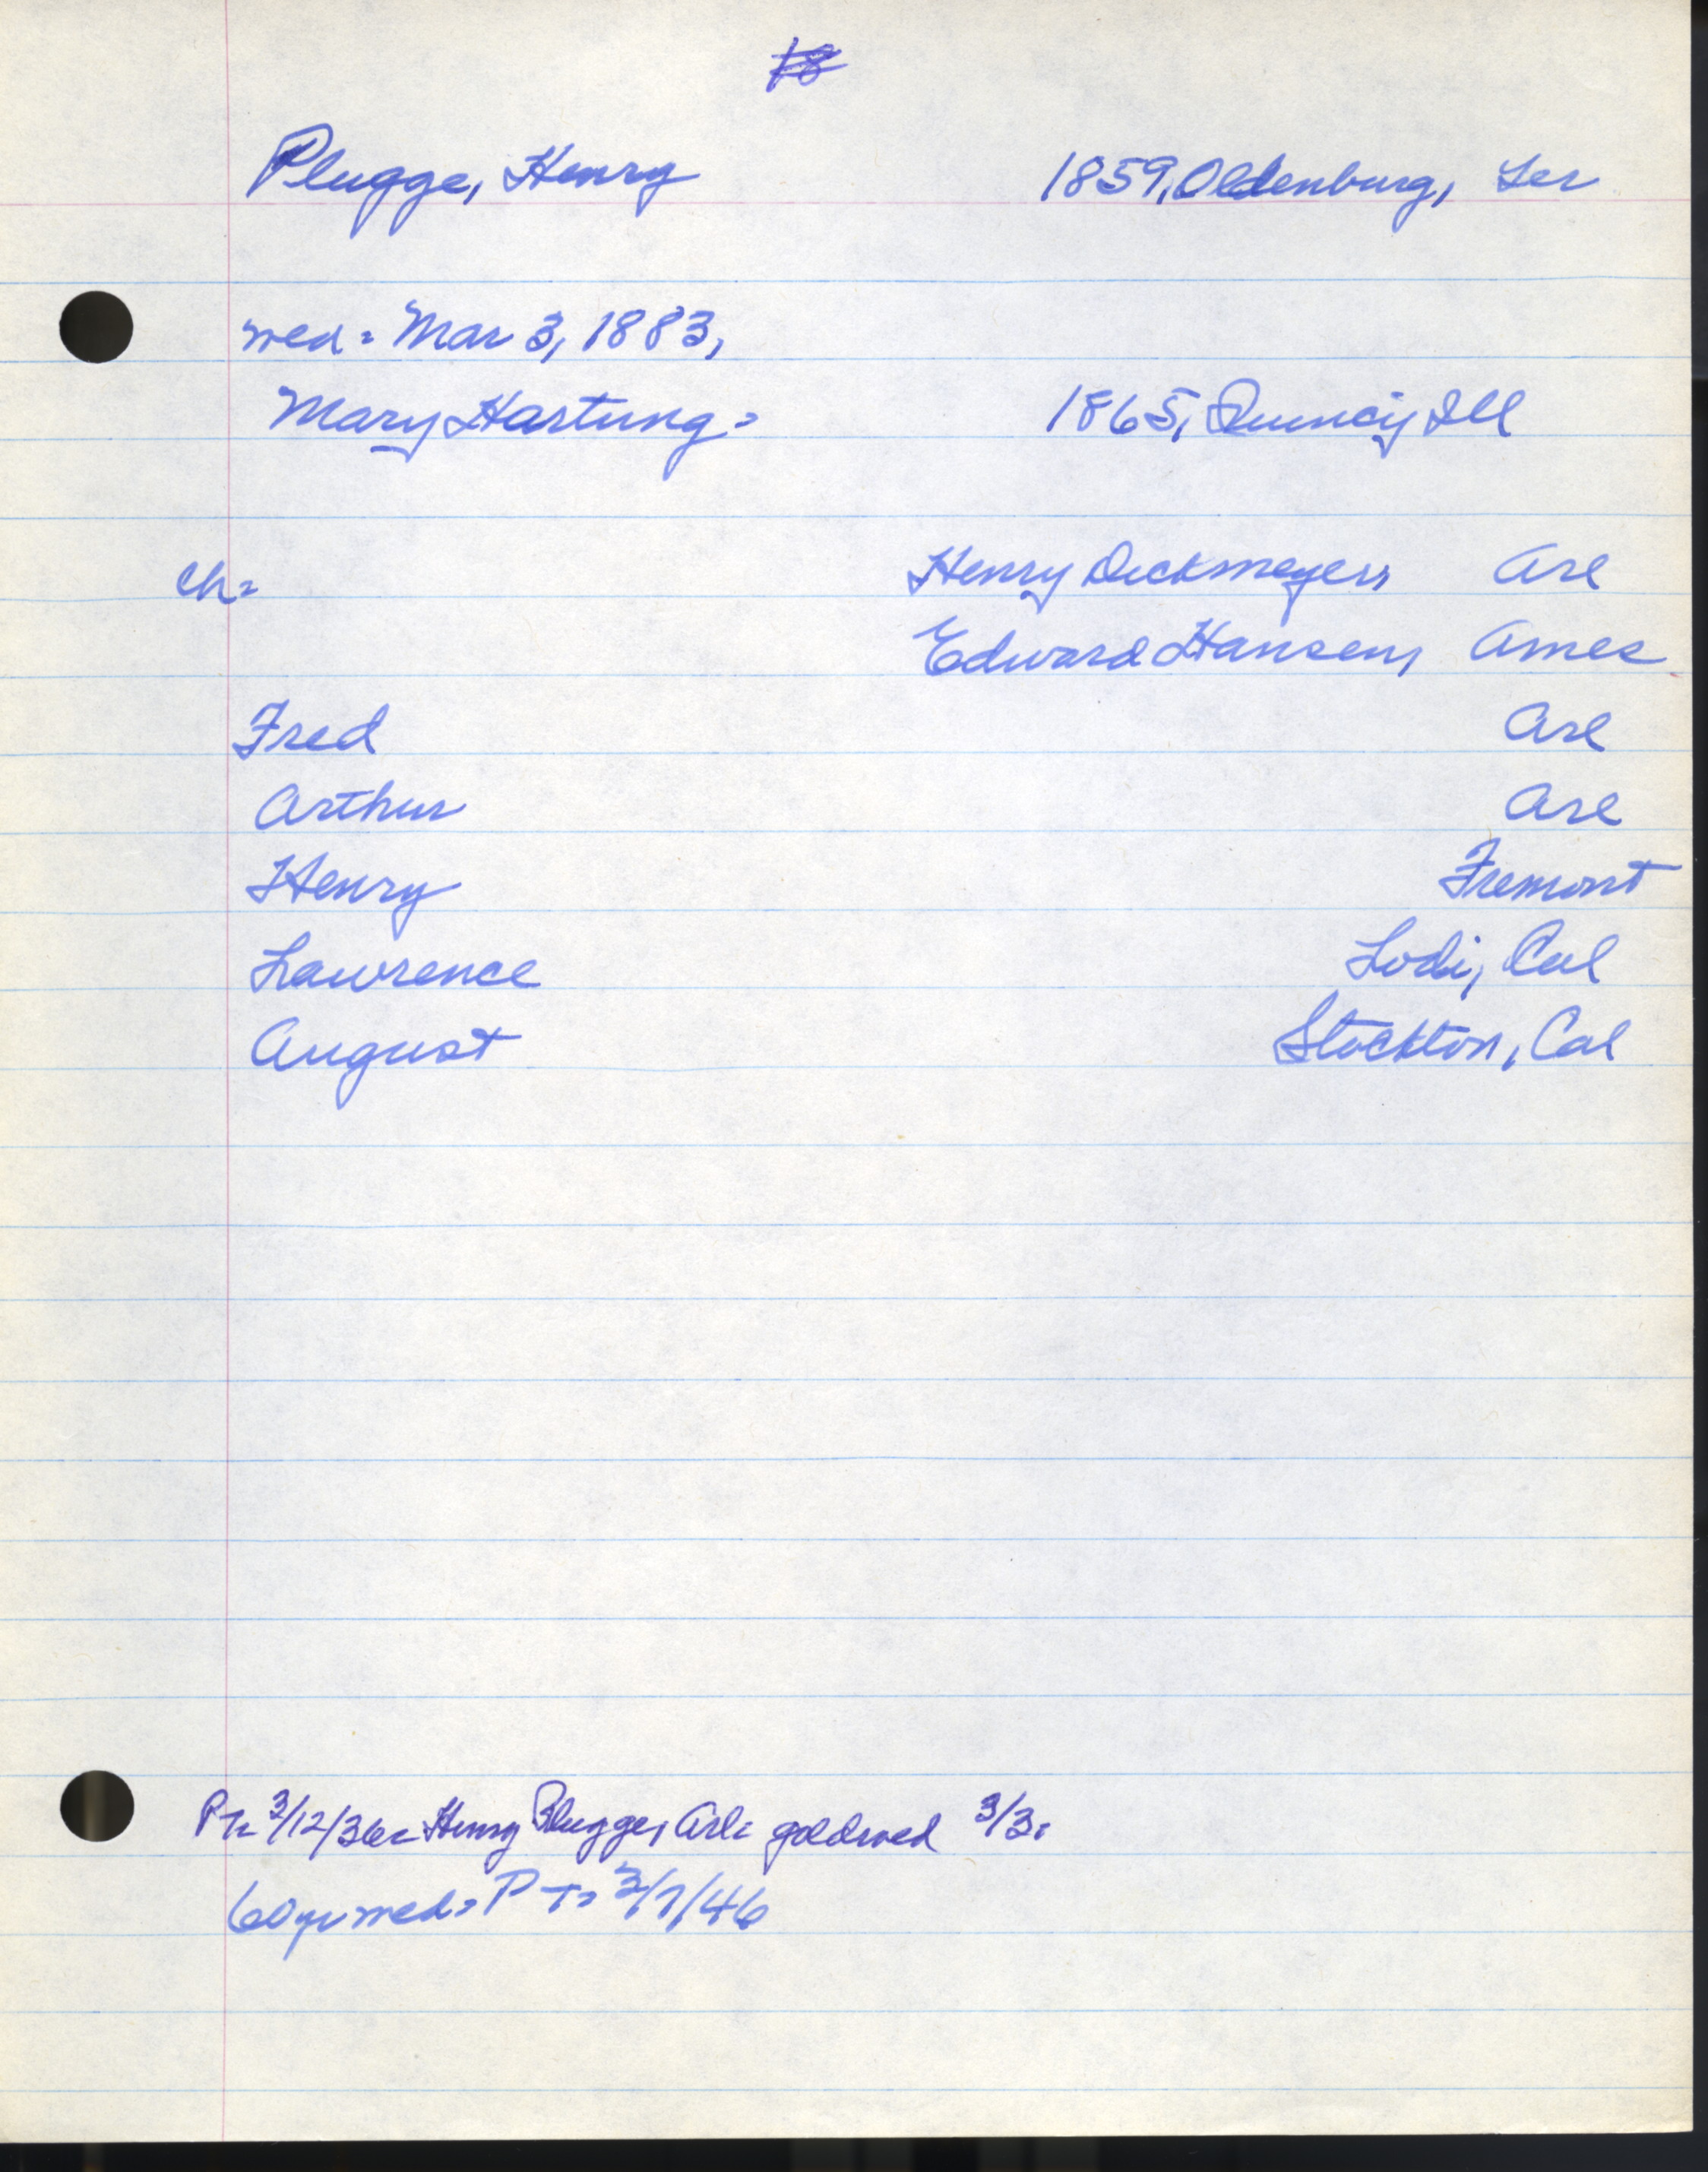 18
Plugge, Henry 1859, Oldenburg, Ger
wed = Mar 3, 1883,
Mary Hartung = 1865, Quincy Ill
ch= Henry Dieckmeyer, Arl
Edward Hansen, Ames
Fred Arl
Arthur Arl
Henry Fremont
Lawrence Lodi, Cal
August Stockton, Cal
3/12/36 = Henry Plugge, Arl = gold wed 3/3.
60 yr wed = P T = 3/7/46